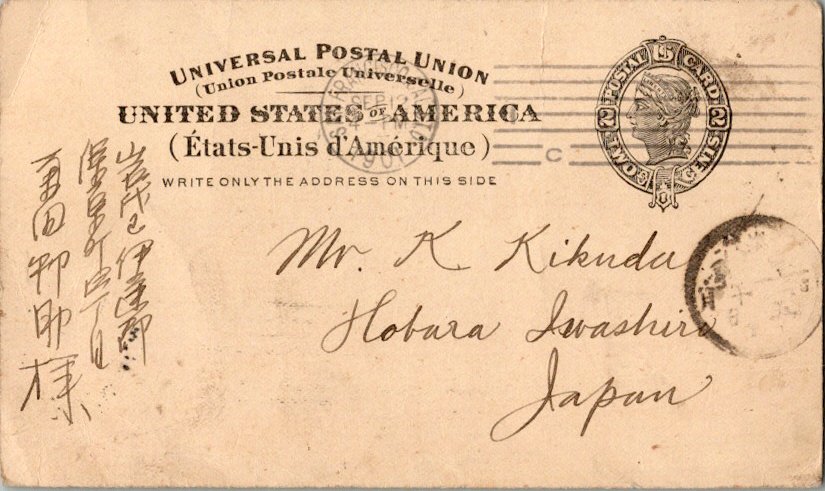 UNIVERSAL POSTAL UNION
(Union Postale Universelle)
UNITED STATES OF AMERICA
(États-Unis d'Amérique)
WRITE ONLY THE ADDRESS ON THIS SIDE
POSTAL CARD
U S
2 2
TWO CENTS
SAN FRANCISCO, CAL.
SEP
1901
C
Mr. K Kikuda
Hobara Iwashiro
Japan
岩代国伊達郡
保原町四丁目
邦助様